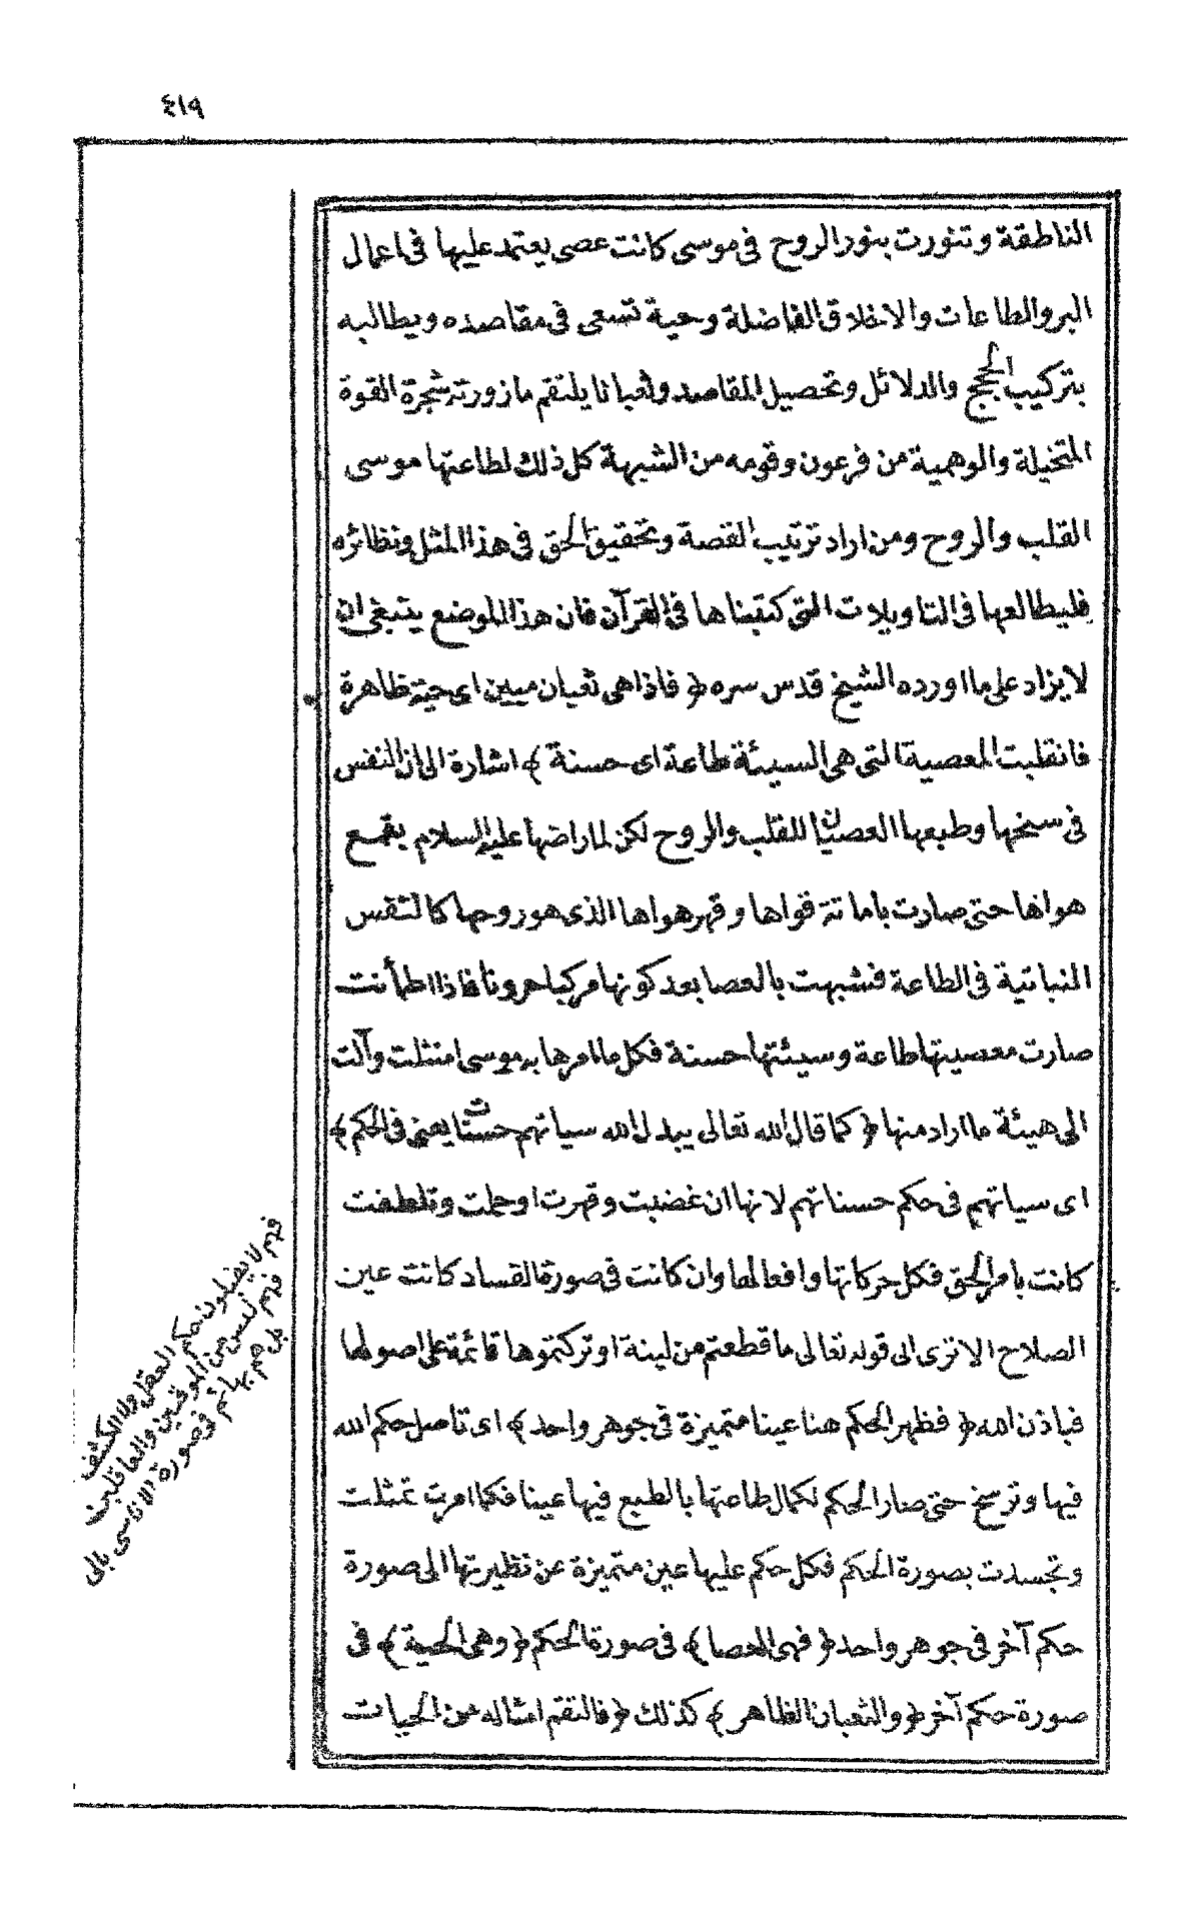 ٤١٩
الناطقة وتنورت بنور الروح فى موسى كانت عصى يعتمد عليها فى اعمال
البر والطاعات والاخلاق الفاضلة وحية تسعى فى مقاصده ويطالبه
بتركيب الحجج والدلائل وتحصيل المقاصد وثعبانا يلتقم ما زورته شجرة القوة
المتخيلة والوهمية من فرعون وقومه من الشبهة كل ذلك لطاعتها موسى
القلب والروح ومن اراد ترتيب القصة وتحقيق الحق فى هذا المثل ونظائره
فليطالعها فى التاويلات التى كتبناها فى القرآن فان هذا الموضع ينبغى ان
لا يزاد على ما اورده الشيخ قدس سره ﴿ فاذا هى ثعبان مبين اى حية ظاهرة
فانقلبت المعصية التى هى السيئة طاعة اى حسنة ﴾ اشارة الى ان النفس
فى سنخها وطبعها العصيان للقلب والروح لكن لما راضها عليه السلام بقمع
هواها حتى صارت باماتة قواها وقهر هواها الذى هو روحها كالنفس
النباتية فى الطاعة فشبهت بالعصا بعد كونها مركبا حرونا فاذا اطمأنت
صارت معصيتها طاعة وسيئتها حسنة فكل ما امرها به موسى امتثلت وآلت
الى هيئة ما اراد منها ﴿ كما قال الله تعالى يبدل الله سياتهم حسنات يعنى فى الحكم ﴾
اى سياتهم فى حكم حسناتهم لانها ان غضبت وقهرت او حلمت وتلطفت
كانت بامر الحق فكل حركاتها وافعالها وان كانت فى صورة الفساد كانت عين
الصلاح الا ترى الى قوله تعالى ما قطعتم من لينة او تركتموها قائمة على اصولها
فباذن الله ﴿ فظهر الحكم هنا عينا متميزة فى جوهر واحد ﴾ اى تاصل حكم الله
فيها وترسخ حتى صار الحكم لكمال طاعتها بالطبع فيها عينا فكما امرت تمثلت
وتجسدت بصورة الحكم فكل حكم عليها عين متميزة عن نظيرتها الى صورة
حكم آخر فى جوهر واحد ﴿ فهى العصا ﴾ فى صورة الحكم ﴿ وهى الحية ﴾ فى
صورة حكم آخر ﴿ والثعبان الظاهر ﴾ كذلك ﴿ فالتقم امثاله من الحيات
فهم لا يقبلون حكم العقل ولا الكشف
فهم ليس من المؤمنين والعاقلين
بل هم بهائم فى صورة الاناسى بالى